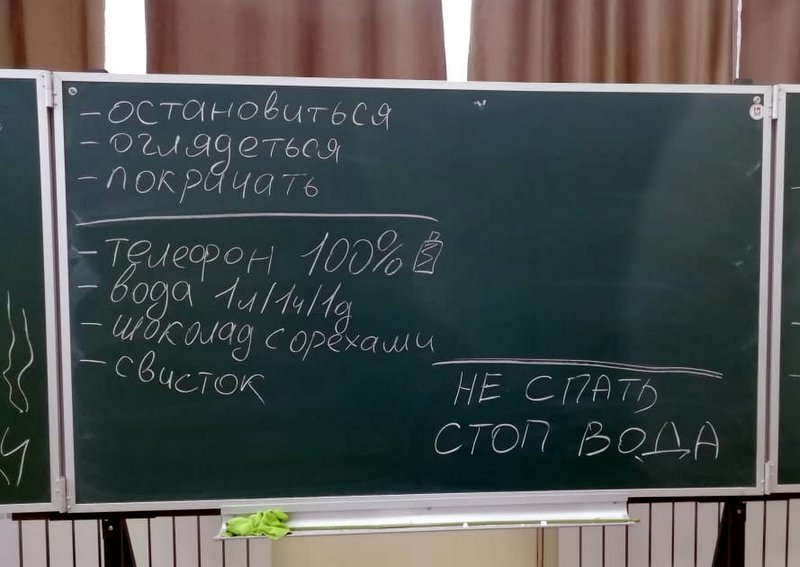 - остановиться
- оглядеться
- покричать
- телефон 100%
- вода 1л/1ч/1д
- шоколад с орехами
- свисток
НЕ СПАТЬ
СТОП ВОДА